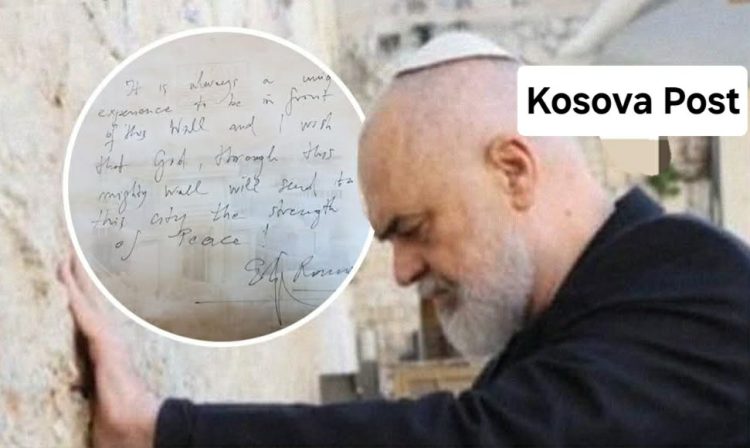 It is always a
experience to be in front
of this Wall and I wish
that God, through this
mighty wall will send to
this city the strength
of Peace!
Kosova Post